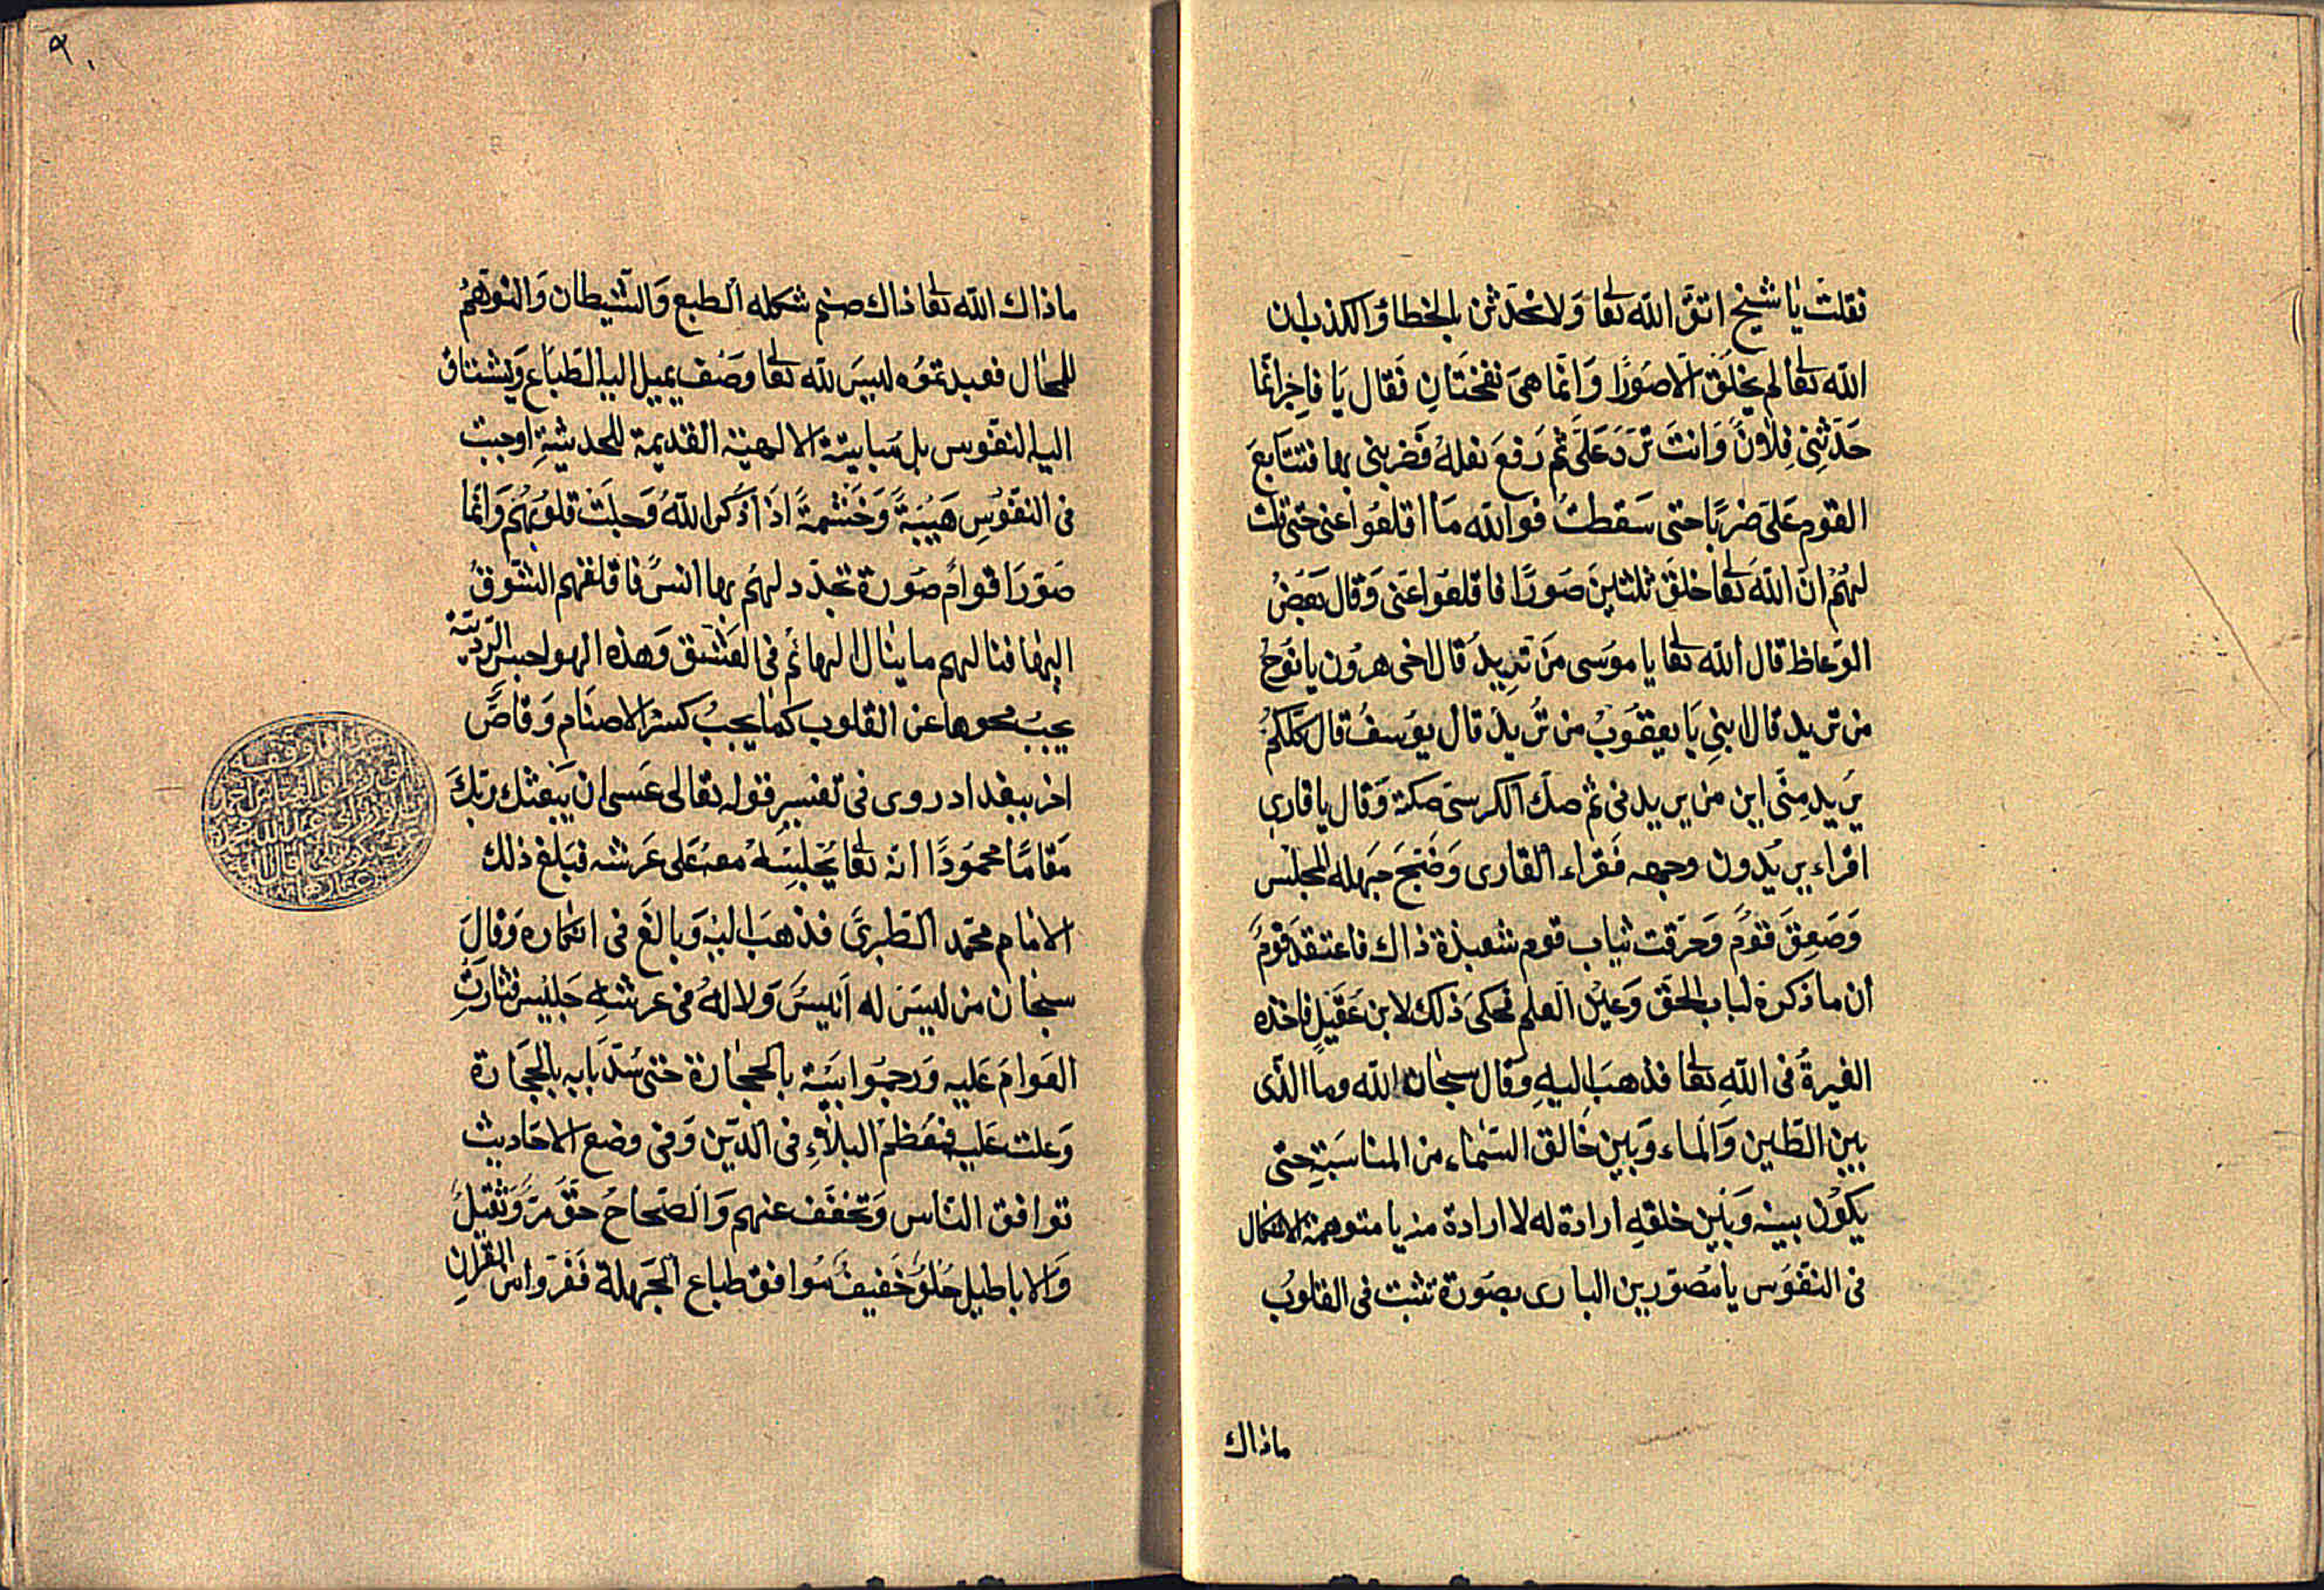 فقلت يا شيخ اتق الله تعا ولا تحدثن بالخطاء والكذب ان
الله تعا لم يخلق الا صورا وانما هى نفختان فقال يا فاجر انما
حدثنى فلان وانت ترد على ثم رفع نعله فضربنى بها فتتابع
القوم على ضربا حتى سقطت فوالله ما اقلعوا عنى حتى قلت
لهم ان الله تعا خلق ثلثين صورا فاقلعوا عنى وقال بعض
الوعاظ قال الله تعا يا موسى من تريد قال اخى هرون يا نوح
من تريد قال ابنى يا يعقوب من تريد قال يوسف قال كلكم
يريد منى اين من يريدنى ثم صك الكرسى صكة وقال يا قارى
اقراء يريدون وجهه فقراء القارى وضج جهله المجلس
وصعق قوم وخرقت ثياب قوم شعبذة ذاك فاعتقد قوم
ان ما ذكره لباب الحق وعين العلم فحكى ذلك لابن عقيل فاخذه
الغيرة فى الله تعا فذهب اليه وقال سبحان الله وما الذى
بين الطين والماء وبين خالق السماء من المناسبة حتى
يكون بينه وبين خلقه ارادة له لا ارادة منه يا متوهمة الاشكال
فى النفوس يا مصورين البارى بصورة تثبت فى القلوب
ماذاك
٩٠
ماذاك الله تعا ذاك صنم شكله الطبع والشيطان والتوهم
للمحال فعبدتموه ليس لله تعا وصف يميل اليه الطباع ويشتاق
اليه النفوس بل مباينة الالهية القديمة للحديثة اوجبت
فى النفوس هيبة وحشمة اذا ذكر الله وجلت قلوبهم وانما
صور اقوام صورة تجدد لهم بها انس فاقلقهم الشوق
اليها فنالهم ما ينال البهائم فى العشق وهذه الهواجس الردية
يجب محوها عن القلوب كما يجب كسر الاصنام وقاص
اخر ببغداد روى فى تفسير قوله تعالى عسى ان يبعثك ربك
مقاما محمودا انه تعا يجلسه معه على عرشه فبلغ ذلك
الامام محمد الطبرى فذهب اليه وبالغ فى انكاره وقال
سبحان من ليس له انيس ولا له فى عرشه جليس فثارت
العوام عليه ورجموا بيته بالحجارة حتى سد بابه بالحجارة
وعلت عليه فعظم البلاء فى الدين وفى وضع الاحاديث
توافق الناس وتخفف عنهم والصحاح حق مر وثقيل
والاباطيل حلو خفيف توافق طباع الجهلة ففروا من القران